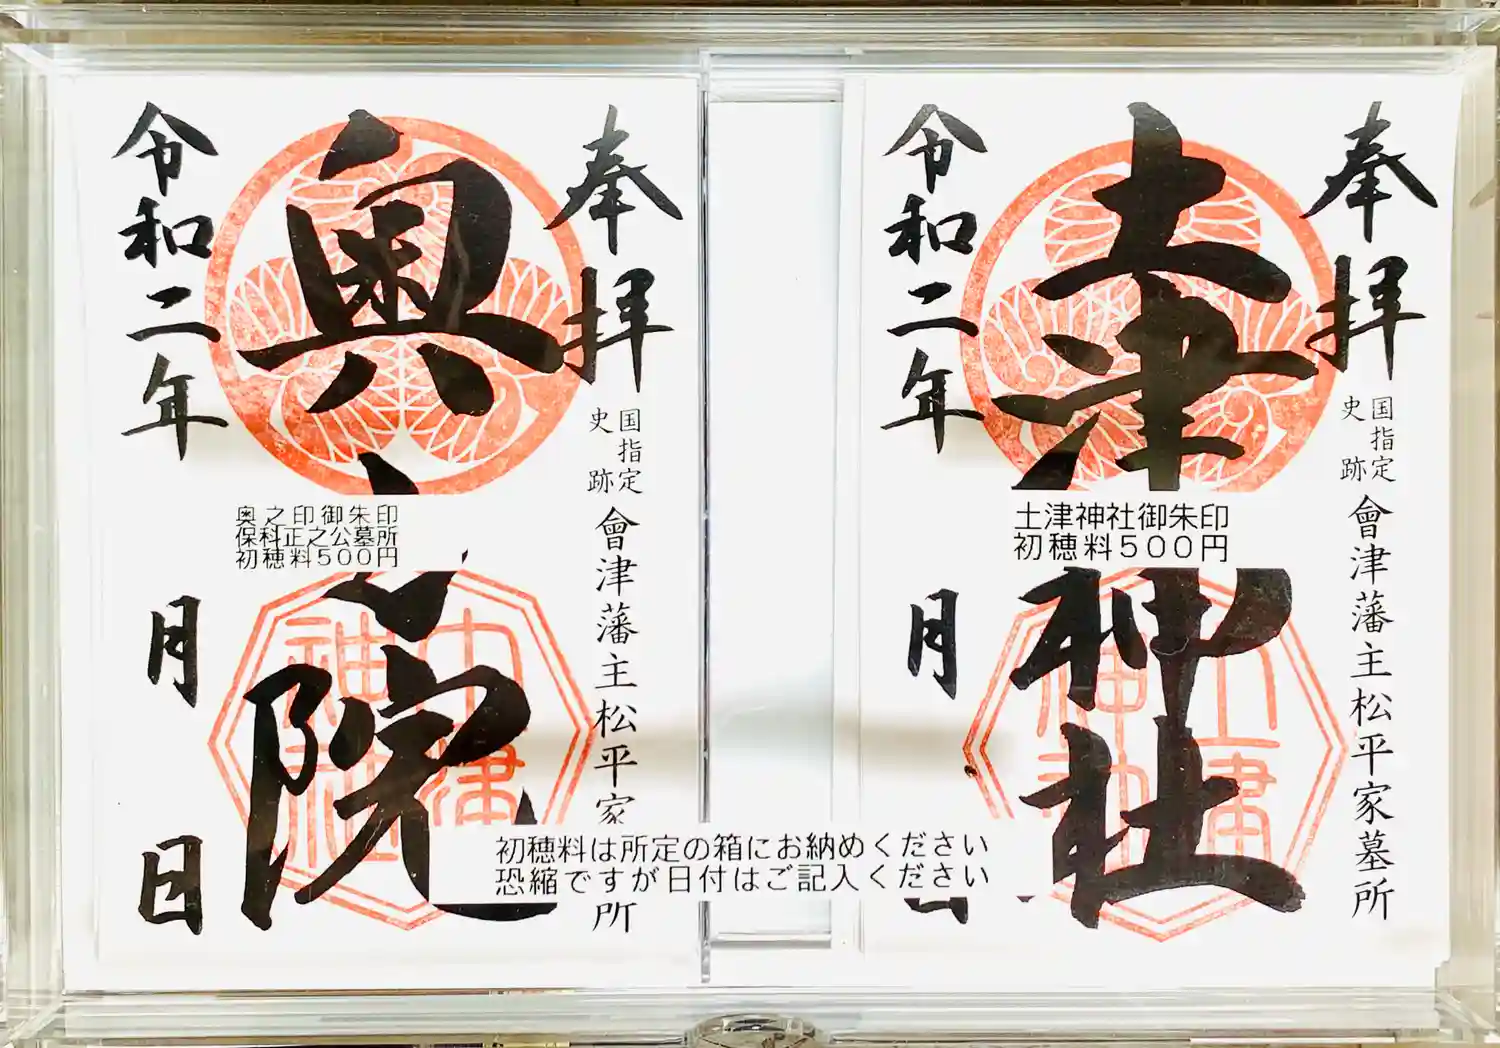 奉拝
国指定
史跡
會津藩主松平家
所
奥
院
令和二年
月
日
奥之印御朱印
保科正之公墓所
初穂料500円
奉拝
国指定
史跡
會津藩主松平家墓所
土津神社
令和二年
月
土津神社御朱印
初穂料500円
初穂料は所定の箱にお納めください
恐縮ですが日付はご記入ください